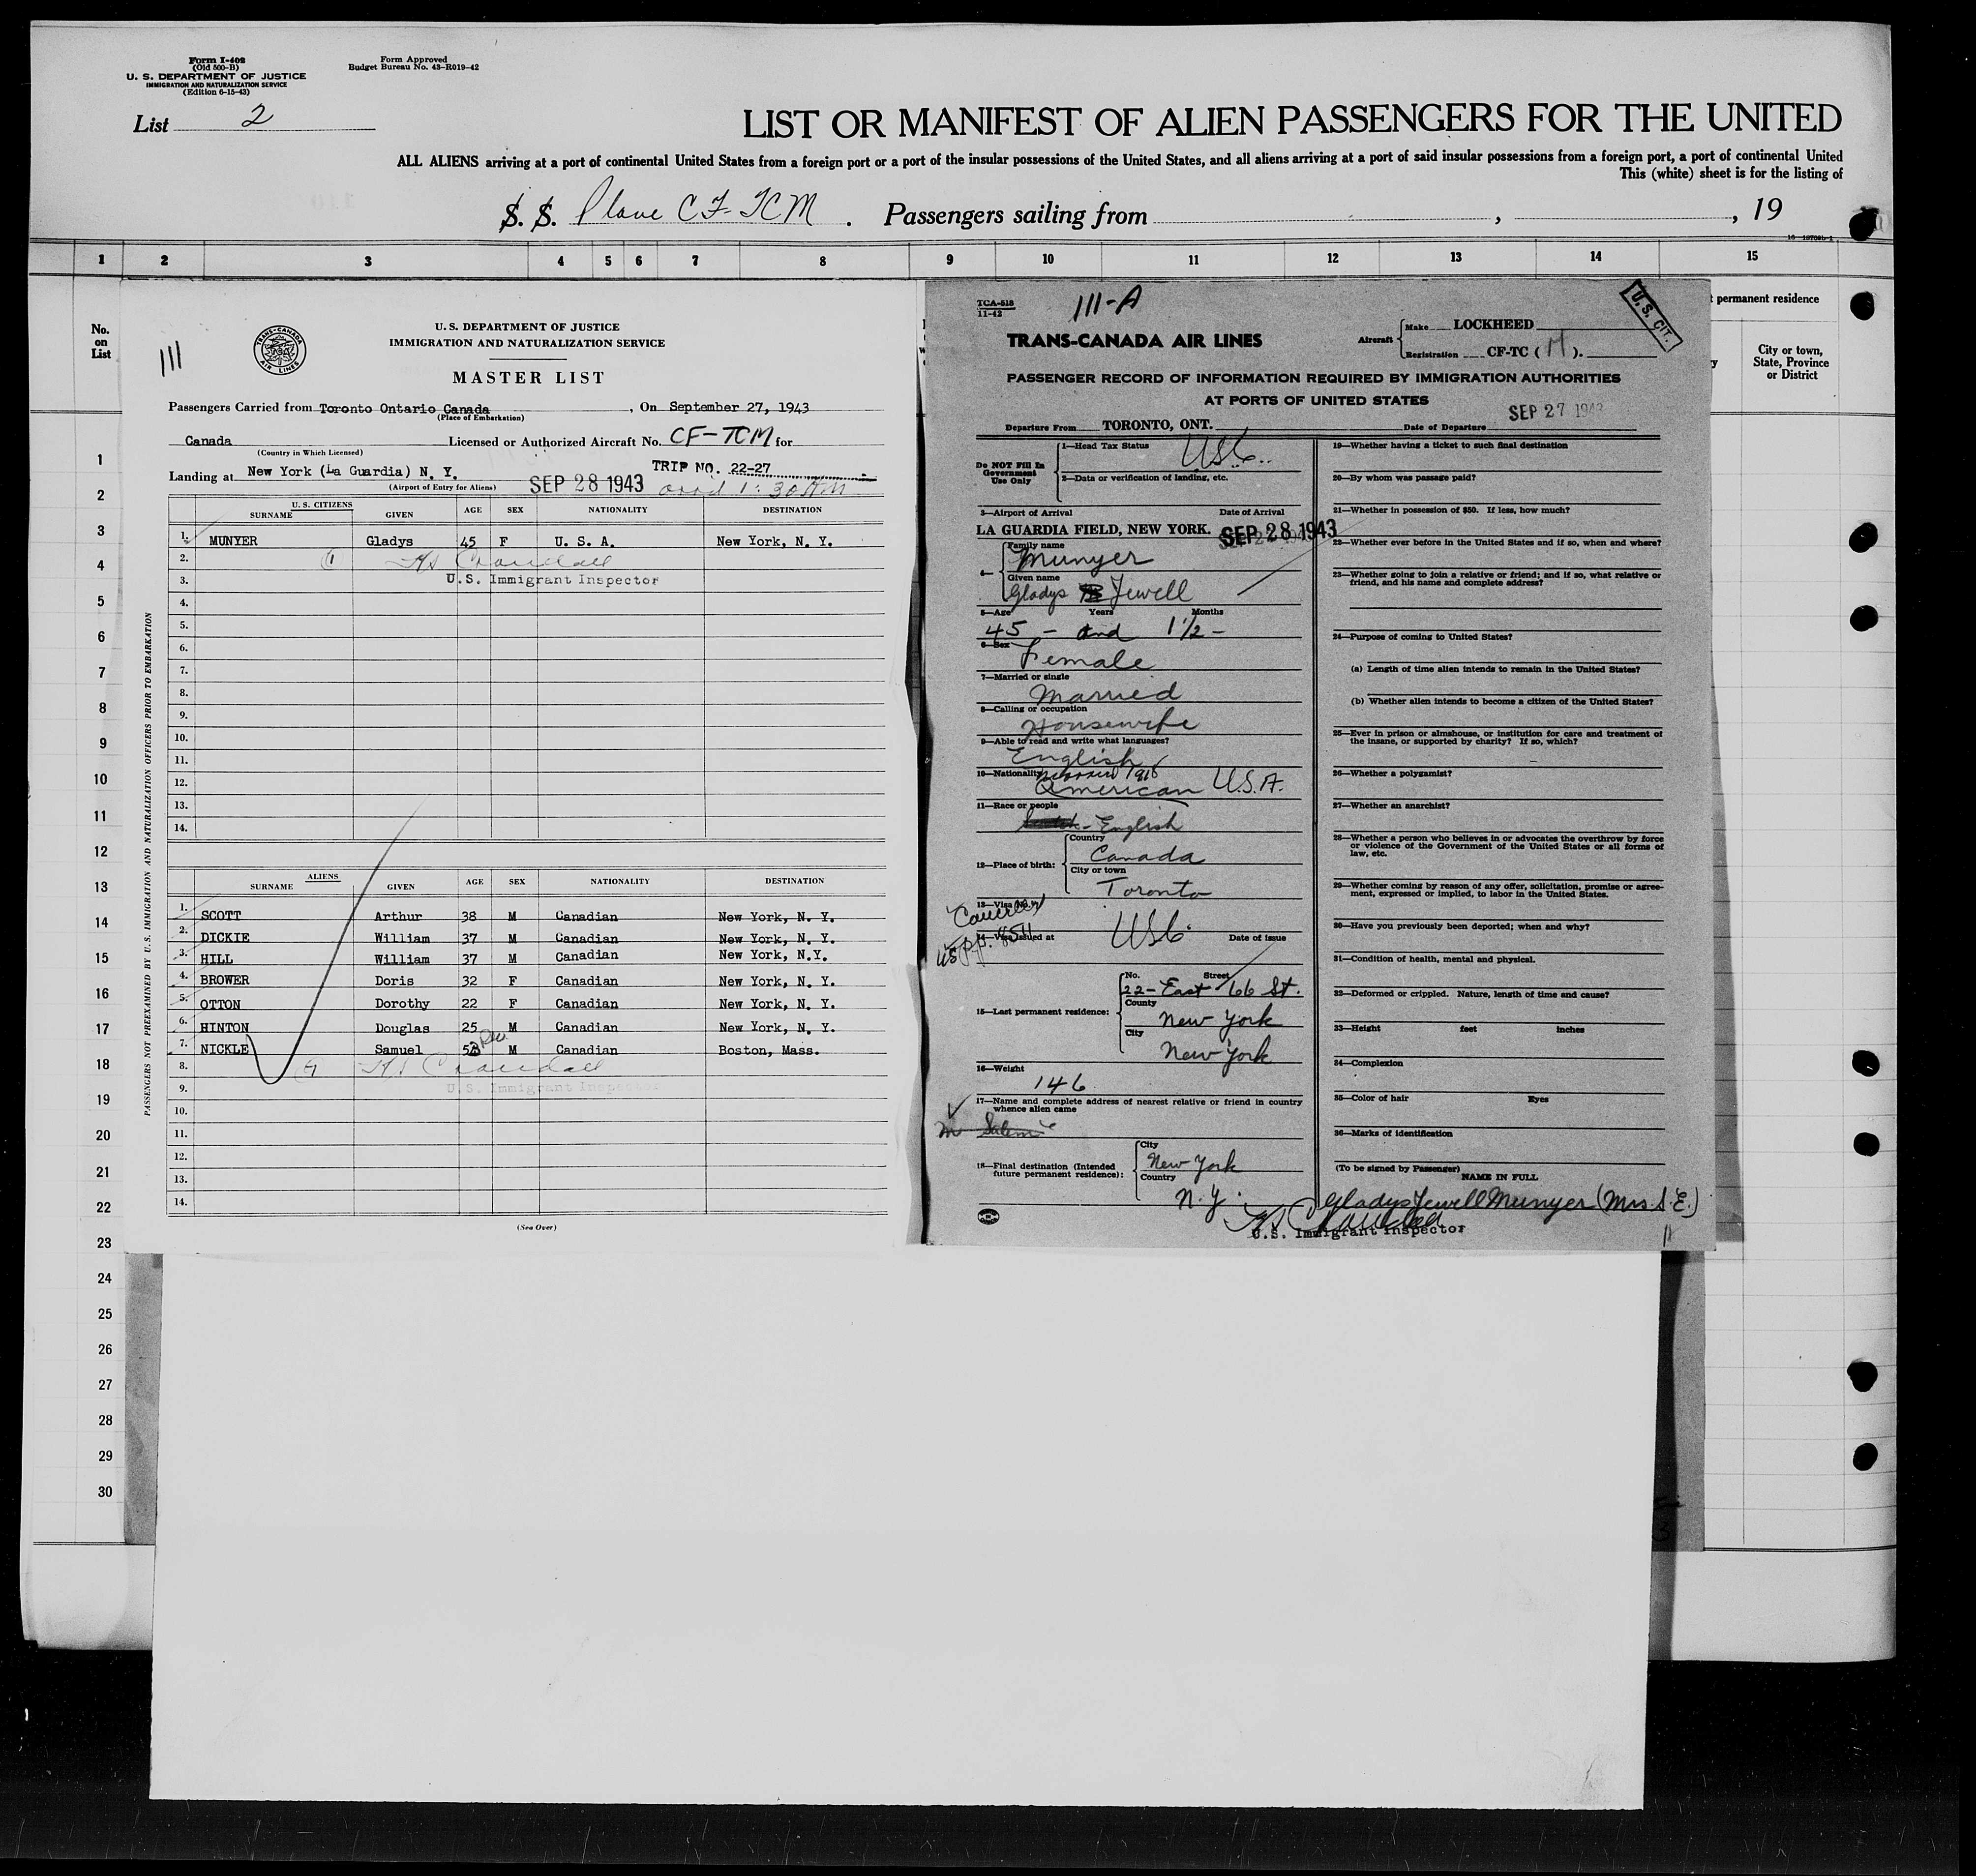 Form I-402
(Old 500-B)
U. S. DEPARTMENT OF JUSTICE
IMMIGRATION AND NATURALIZATION SERVICE
(Edition 6-15-43)
Form Approved
Budget Bureau No. 43-R019-42
List 2
LIST OR MANIFEST OF ALIEN PASSENGERS FOR THE UNITED
ALL ALIENS arriving at a port of continental United States from a foreign port or a port of the insular possessions of the United States, and all aliens arriving at a port of said insular possessions from a foreign port, a port of continental United
This (white) sheet is for the listing of
S. S. Plane CF-TCM. Passengers sailing from , , 19
1 2 3 4 5 6 7 8 9 10 11 12 13 14 15
No. on List
permanent residence
City or town, State, Province or District
1
2
3
4
5
6
7
8
9
10
11
12
13
14
15
16
17
18
19
20
21
22
23
24
25
26
27
28
29
30
111
TRANS-CANADA AIR LINES
U. S. DEPARTMENT OF JUSTICE
IMMIGRATION AND NATURALIZATION SERVICE
MASTER LIST
Passengers Carried from Toronto Ontario Canada, On September 27, 1943
(Place of Embarkation)
Canada Licensed or Authorized Aircraft No. CF-TCM for
(Country in Which Licensed)
Landing at New York (La Guardia) N. Y. TRIP NO. 22-27
(Airport of Entry for Aliens) SEP 28 1943 1:30 AM
U. S. CITIZENS
SURNAME GIVEN AGE SEX NATIONALITY DESTINATION
1. MUNYER Gladys 45 F U. S. A. New York, N. Y.
2.
3. U.S. Immigrant Inspector
4.
5.
6.
7.
8.
9.
10.
11.
12.
13.
14.
ALIENS
SURNAME GIVEN AGE SEX NATIONALITY DESTINATION
1. SCOTT Arthur 38 M Canadian New York, N. Y.
2. DICKIE William 37 M Canadian New York, N. Y.
3. HILL William 37 M Canadian New York, N.Y.
4. BROWER Doris 32 F Canadian New York, N. Y.
5. OTTON Dorothy 22 F Canadian New York, N. Y.
6. HINTON Douglas 25 M Canadian New York, N. Y.
7. NICKLE Samuel M Canadian Boston, Mass.
8.
9. U.S. Immigrant Inspector
10.
11.
12.
13.
14.
(See Over)
PASSENGERS NOT PREEXAMINED BY U. S. IMMIGRATION AND NATURALIZATION OFFICERS PRIOR TO EMBARKATION
TCA-518
11-42
111-A
U. S. CIT.
TRANS-CANADA AIR LINES
Aircraft Make LOCKHEED
Registration CF-TC (M).
PASSENGER RECORD OF INFORMATION REQUIRED BY IMMIGRATION AUTHORITIES
AT PORTS OF UNITED STATES
SEP 27 1943
Departure From TORONTO, ONT. Date of Departure
Do NOT Fill In Government Use Only
1—Head Tax Status USC
2—Data or verification of landing, etc.
3—Airport of Arrival Date of Arrival
LA GUARDIA FIELD, NEW YORK. SEP 28 1943
4— Family name
Munyer
Given name
Gladys Jewell
5—Age Years Months
45 - and 1 1/2 -
6—Sex
Female
7—Married or single
Married
8—Calling or occupation
Housewife
9—Able to read and write what languages?
English
10—Nationality 1916
American U.S.A.
11—Race or people
English
12—Place of birth: Country
Canada
City or town
Toronto
13—Visa No.
14—Visa issued at USC Date of issue
15—Last permanent residence: No. Street
22- East 66 St.
County
New York
City
New York
16—Weight
146
17—Name and complete address of nearest relative or friend in country whence alien came
18—Final destination (Intended future permanent residence): City
New York
Country
N.Y.
19—Whether having a ticket to such final destination
20—By whom was passage paid?
21—Whether in possession of $50. If less, how much?
22—Whether ever before in the United States and if so, when and where?
23—Whether going to join a relative or friend; and if so, what relative or friend, and his name and complete address?
24—Purpose of coming to United States?
(a) Length of time alien intends to remain in the United States?
(b) Whether alien intends to become a citizen of the United States?
25—Ever in prison or almshouse, or institution for care and treatment of the insane, or supported by charity? If so, which?
26—Whether a polygamist?
27—Whether an anarchist?
28—Whether a person who believes in or advocates the overthrow by force or violence of the Government of the United States or all forms of law, etc.
29—Whether coming by reason of any offer, solicitation, promise or agreement, expressed or implied, to labor in the United States.
30—Have you previously been deported; when and why?
31—Condition of health, mental and physical.
32—Deformed or crippled. Nature, length of time and cause?
33—Height feet inches
34—Complexion
35—Color of hair Eyes
36—Marks of identification
(To be signed by Passenger)
NAME IN FULL
Gladys Jewell Munyer (Mrs. S. E.)
U.S. Immigrant Inspector